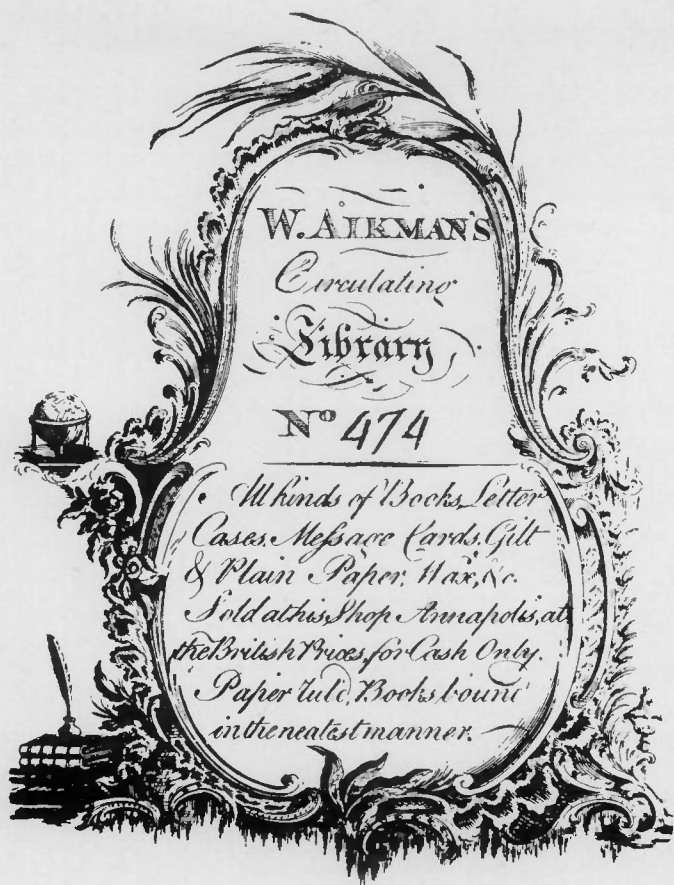 W. AIKMAN'S
Circulating
Library
No 474
All kinds of Books, Letter
Cases, Meſsage Cards, Gilt
& Plain Paper, Wax, &c.
Sold at his Shop Annapolis, at
the British Prices, for Cash Only.
Paper Rul'd, Books bound
in the neatest manner.